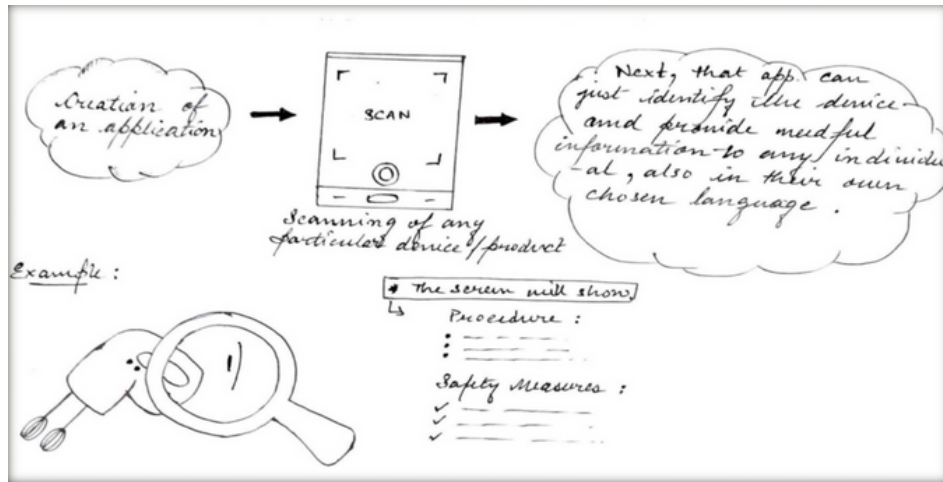 Creation of
an application
SCAN
Scanning of any
particular device/product
Next, that app. can
just identify the device
and provide needful
information to any individu
-al, also in their own
chosen language.
Example :
* The screen will show,
Procedure :
Safety Measures :